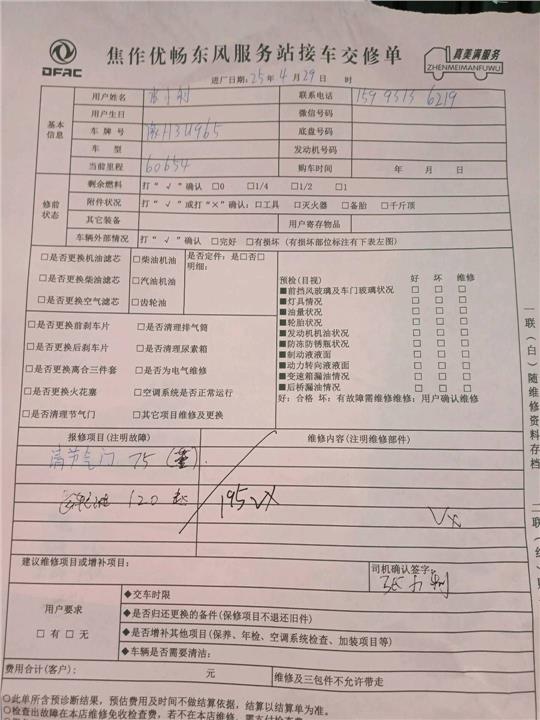 DFAC
焦作优畅东风服务站接车交修单
真美满服务
ZHENMEIMANFUWU
进厂日期：25年4月29日 时
基本信息
用户姓名 联系电话 159 9313 6219
用户生日 微信号码
车牌号 豫H3U965 底盘号码
车型 发动机号码
当前里程 60654 购车时间 年 月 日
修前状态
剩余燃料 打“√”确认 □0 □1/4 □1/2 □1
附件状况 打“√或打“×”确认：□工具 □灭火器 □备胎 □千斤顶
其它装备 用户寄存物品
车辆外部情况 打“√”确认 □完好 □有损坏（有损坏部位标注有下表左图）
□是否更换机油滤芯 □柴油机油 是否定件：是□否□
明细：
□是否更换柴油滤芯 □汽油机油
□是否更换空气滤芯 □齿轮油
□是否更换前刹车片 □是否清理排气筒
□是否更换后刹车片 □是否清理尿素箱
□是否更换离合三件套 □是否为电气维修
□是否更换火花塞 □空调系统是否正常运行
□是否清理节气门 □其它项目维修及更换
预检(目视) 好 坏 维修
■前挡风玻璃及车门玻璃状况 □ □ □
■灯具情况 □ □ □
■油量状况 □ □ □
■轮胎状况 □ □ □
■发动机机油状况 □ □ □
■防冻防锈瓶状况 □ □ □
■制动液液面 □ □ □
■动力转向液液面 □ □ □
■变速箱漏油情况 □ □ □
■后桥漏油情况 □ □ □
好：合格 坏：有故障需维修维修：用户确认维修
报修项目(注明故障) 维修内容(注明维修部件)
清节气门 75
120 195 VX
Vx
建议维修项目或增补项目：
司机确认签字：
用户要求
□有 □无
◆交车时限
◆是否归还更换的备件(保修项目不退还旧件)
◆是否增补其他项目(保养、年检、空调系统检查、加装项目等)
◆车辆是否需要清洁：
费用合计(客户)： 元 维修及三包件不允许带走
○此单所含预诊断结果，预估费用及时间不做结算依据，结算以结算单为准。
○检查出故障在本店维修免收检查费，若不在本店维修，需支付检查费
一联（白）随维修资料存档
二联（红